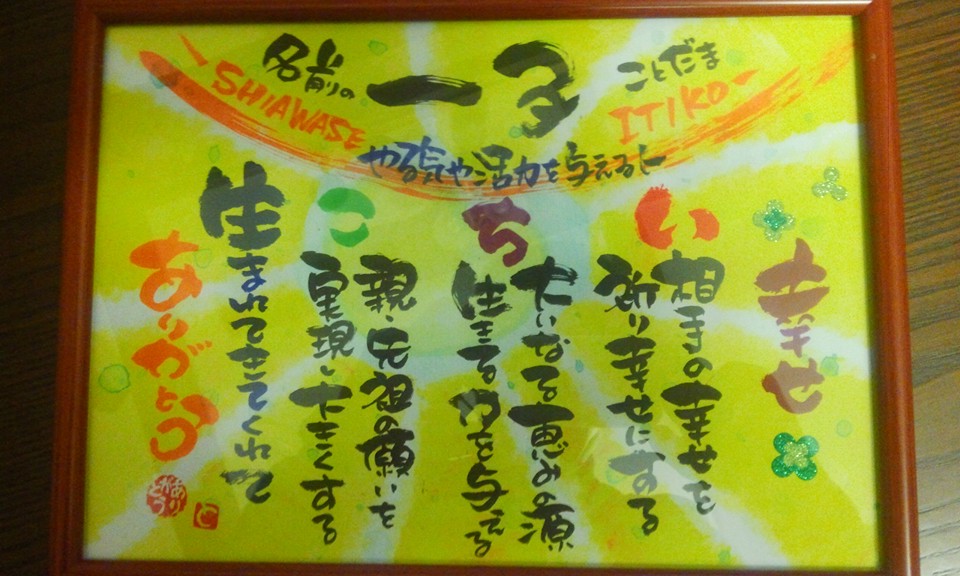 名前の
一子
ことだま
SHIAWASE
ITIKO
やる気や活力を与える人
幸せ
い
相手の幸せを
祈り幸せにする
ち
大いなる恵みの源
生きる力を与える
こ
親・先祖の願いを
実現し大きくする
生まれてきてくれて
ありがとう
ありがとう